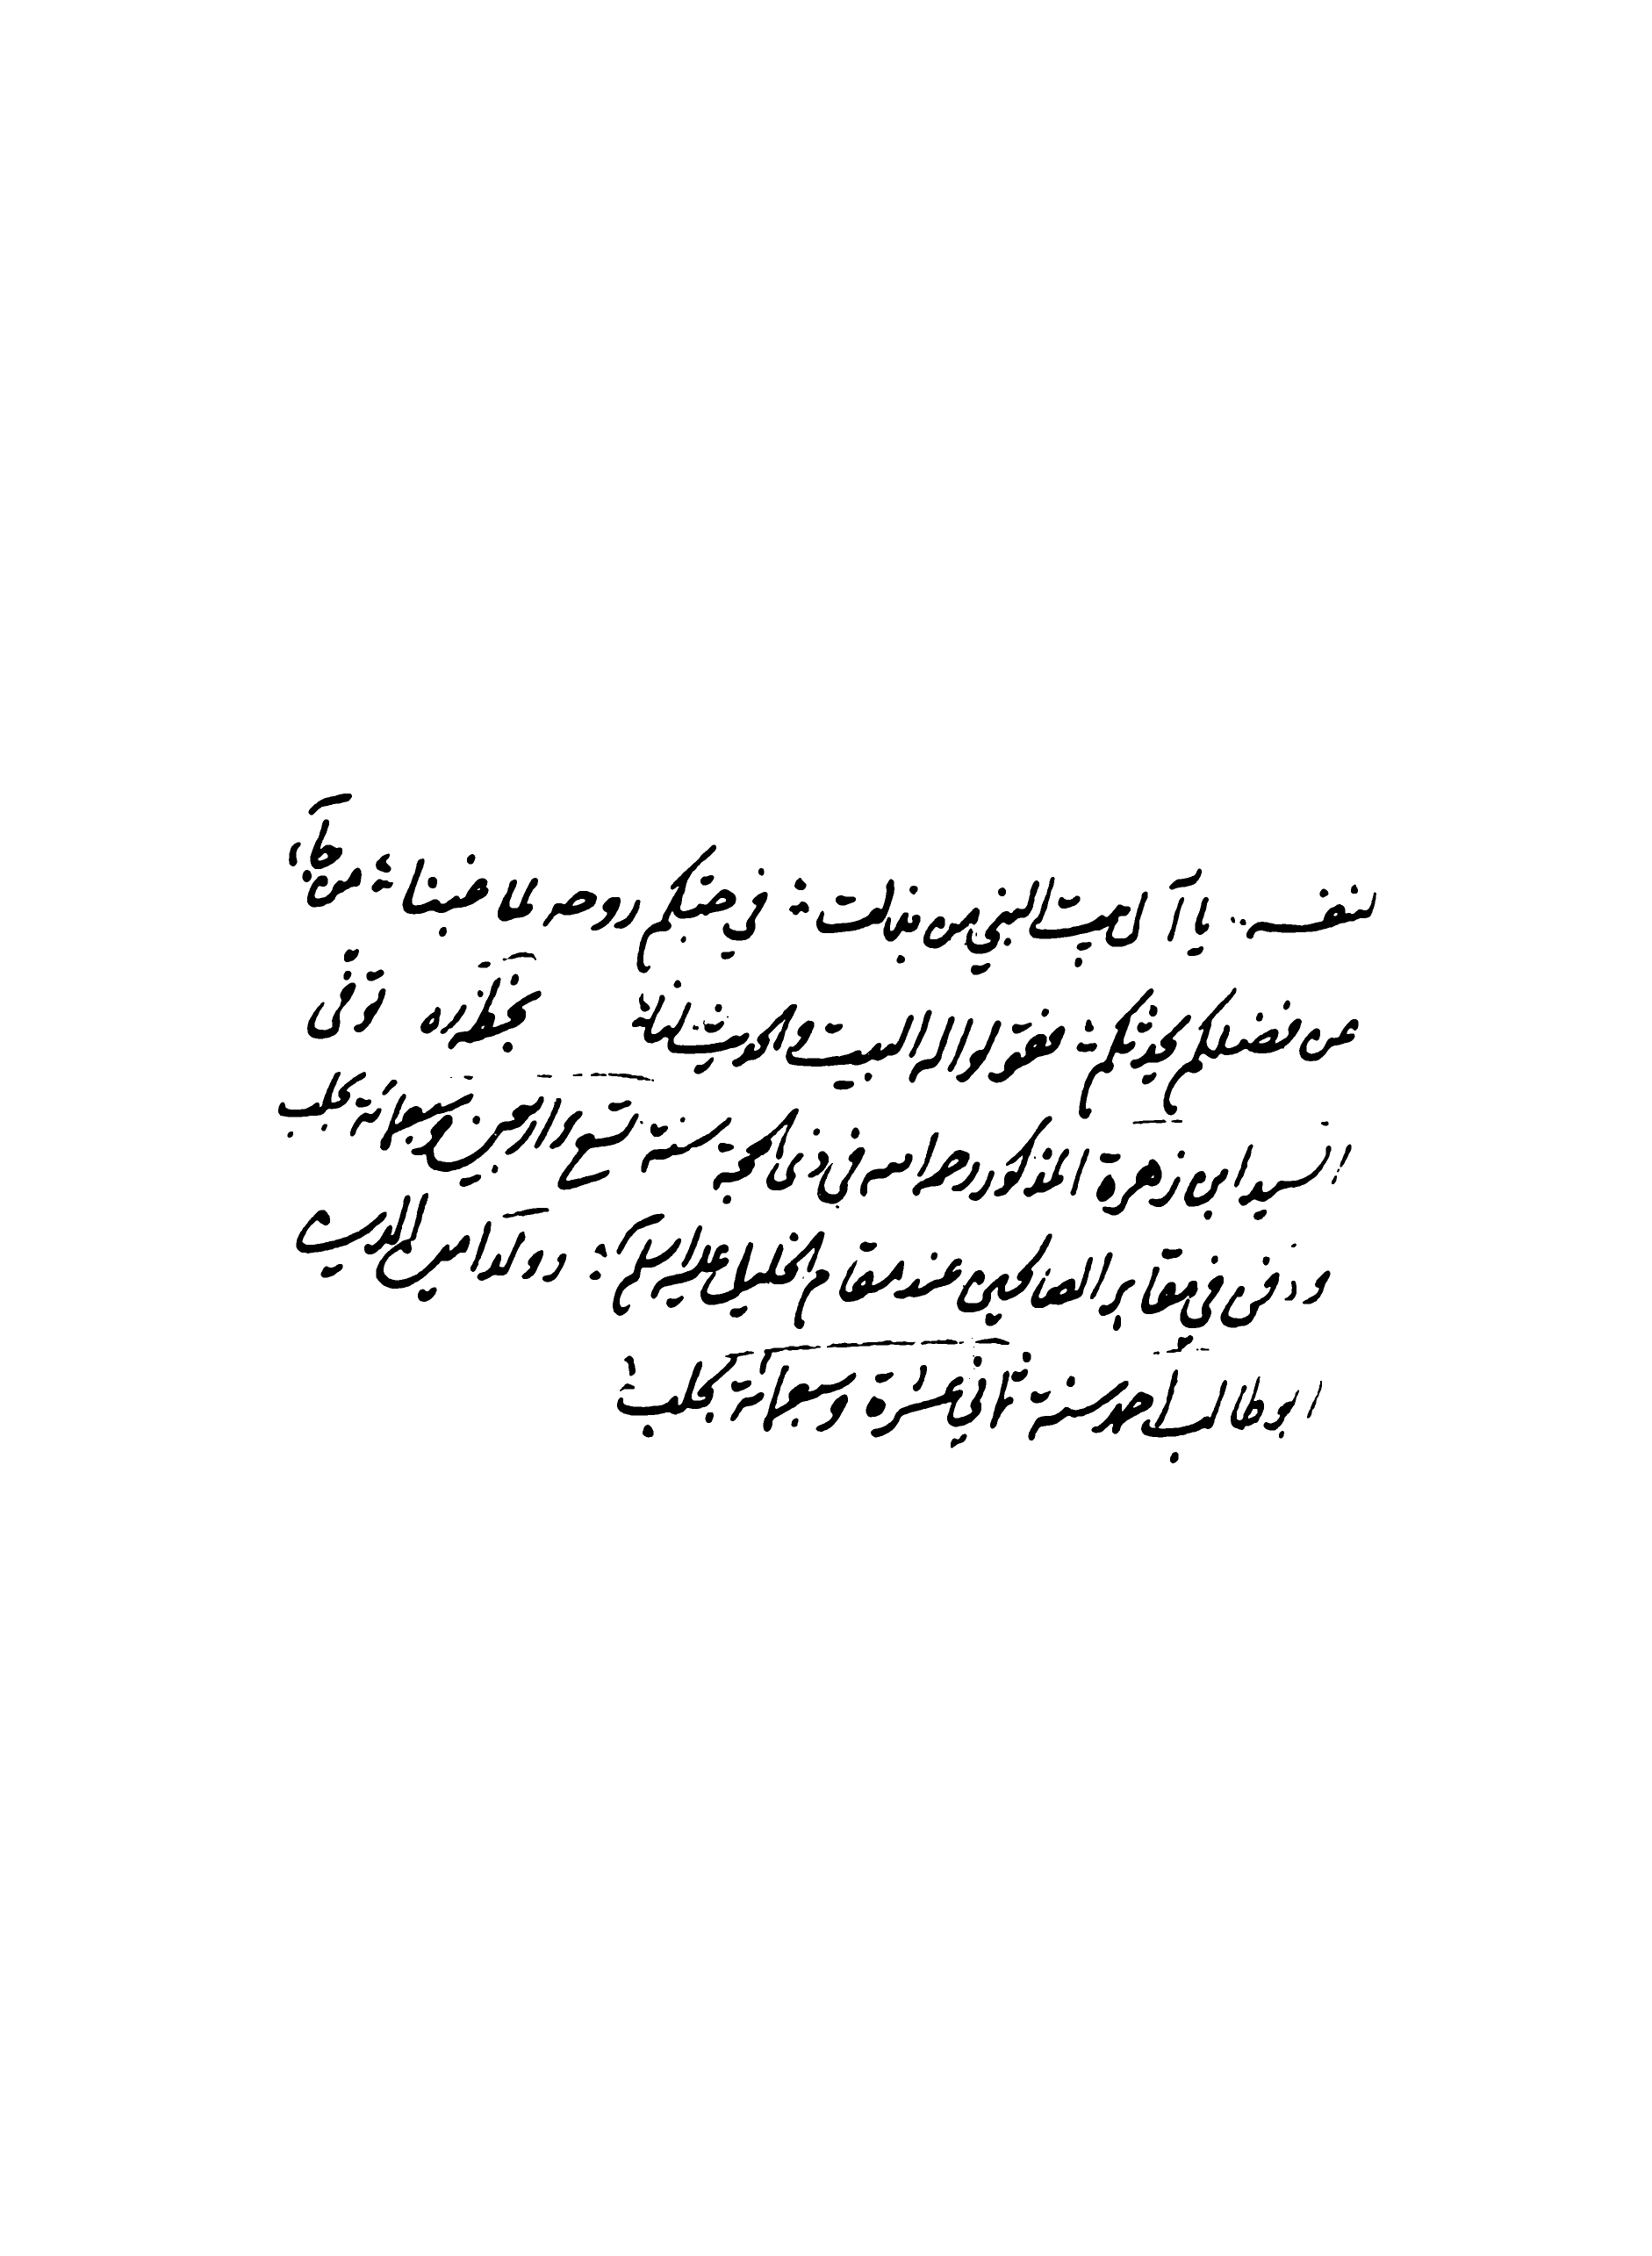 لنفسه .. يا آل بيت النبي من بذلت ؞ في حبكم روحه لما غبنا ؞ من جاء
عن فضلكم يحدثكم ؞ فقولوا له البيت والحديث لنا ؞ بخطه ره توفى
السيد ابن زهرة المذكور رحمه الله في ذى الحجة سنة تسع واربعين وسبعمائة بحلب
ودفن في مقابر الصالحين عند مقام الخليل عليه السلم ؞ ووالده امين الدين
ابو طالب احمد سنة ثماني عشرة وسبعمائة بحلب ؞